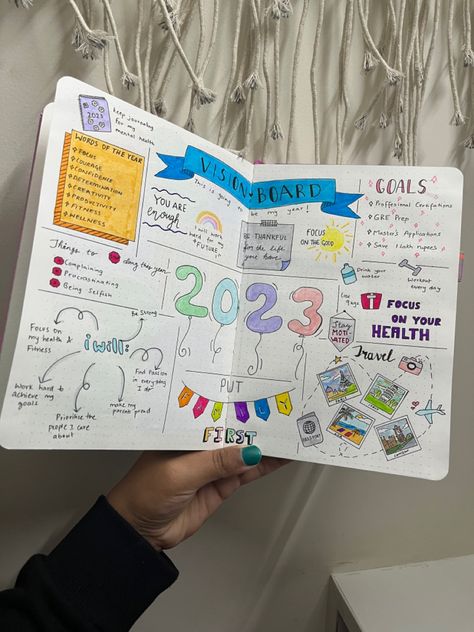 2023
keep journaling
for my
mental health
VISION BOARD
This is going to be my year!
WORDS OF THE YEAR
FOCUS
COURAGE
CONFIDENCE
DETERMINATION
CREATIVITY
PRODUCTIVITY
FITNESS
WELLNESS
YOU ARE
enough
I will work
hard for my
FUTURE
BE THANKFUL
for the life
you have
FOCUS
ON THE GOOD
GOALS
Proffesional Certifications
GRE Prep
Master's Applications
Save 1 lakh rupees
Things to NO this year
Complaining
Procrastinating
Being Selfish
2023
Drink your
water
Workout
every day
Stay
MOTI
VATED
FOCUS
ON YOUR
HEALTH
i will:
Be Strong
Focus on
my health &
Fitness
Work hard to
achieve my
goals
Prioritize the
people I care
about
make my
parents proud
Find Passion
in everyday
I do
PUT
FAMILY
FIRST
Travel
PASSPORT